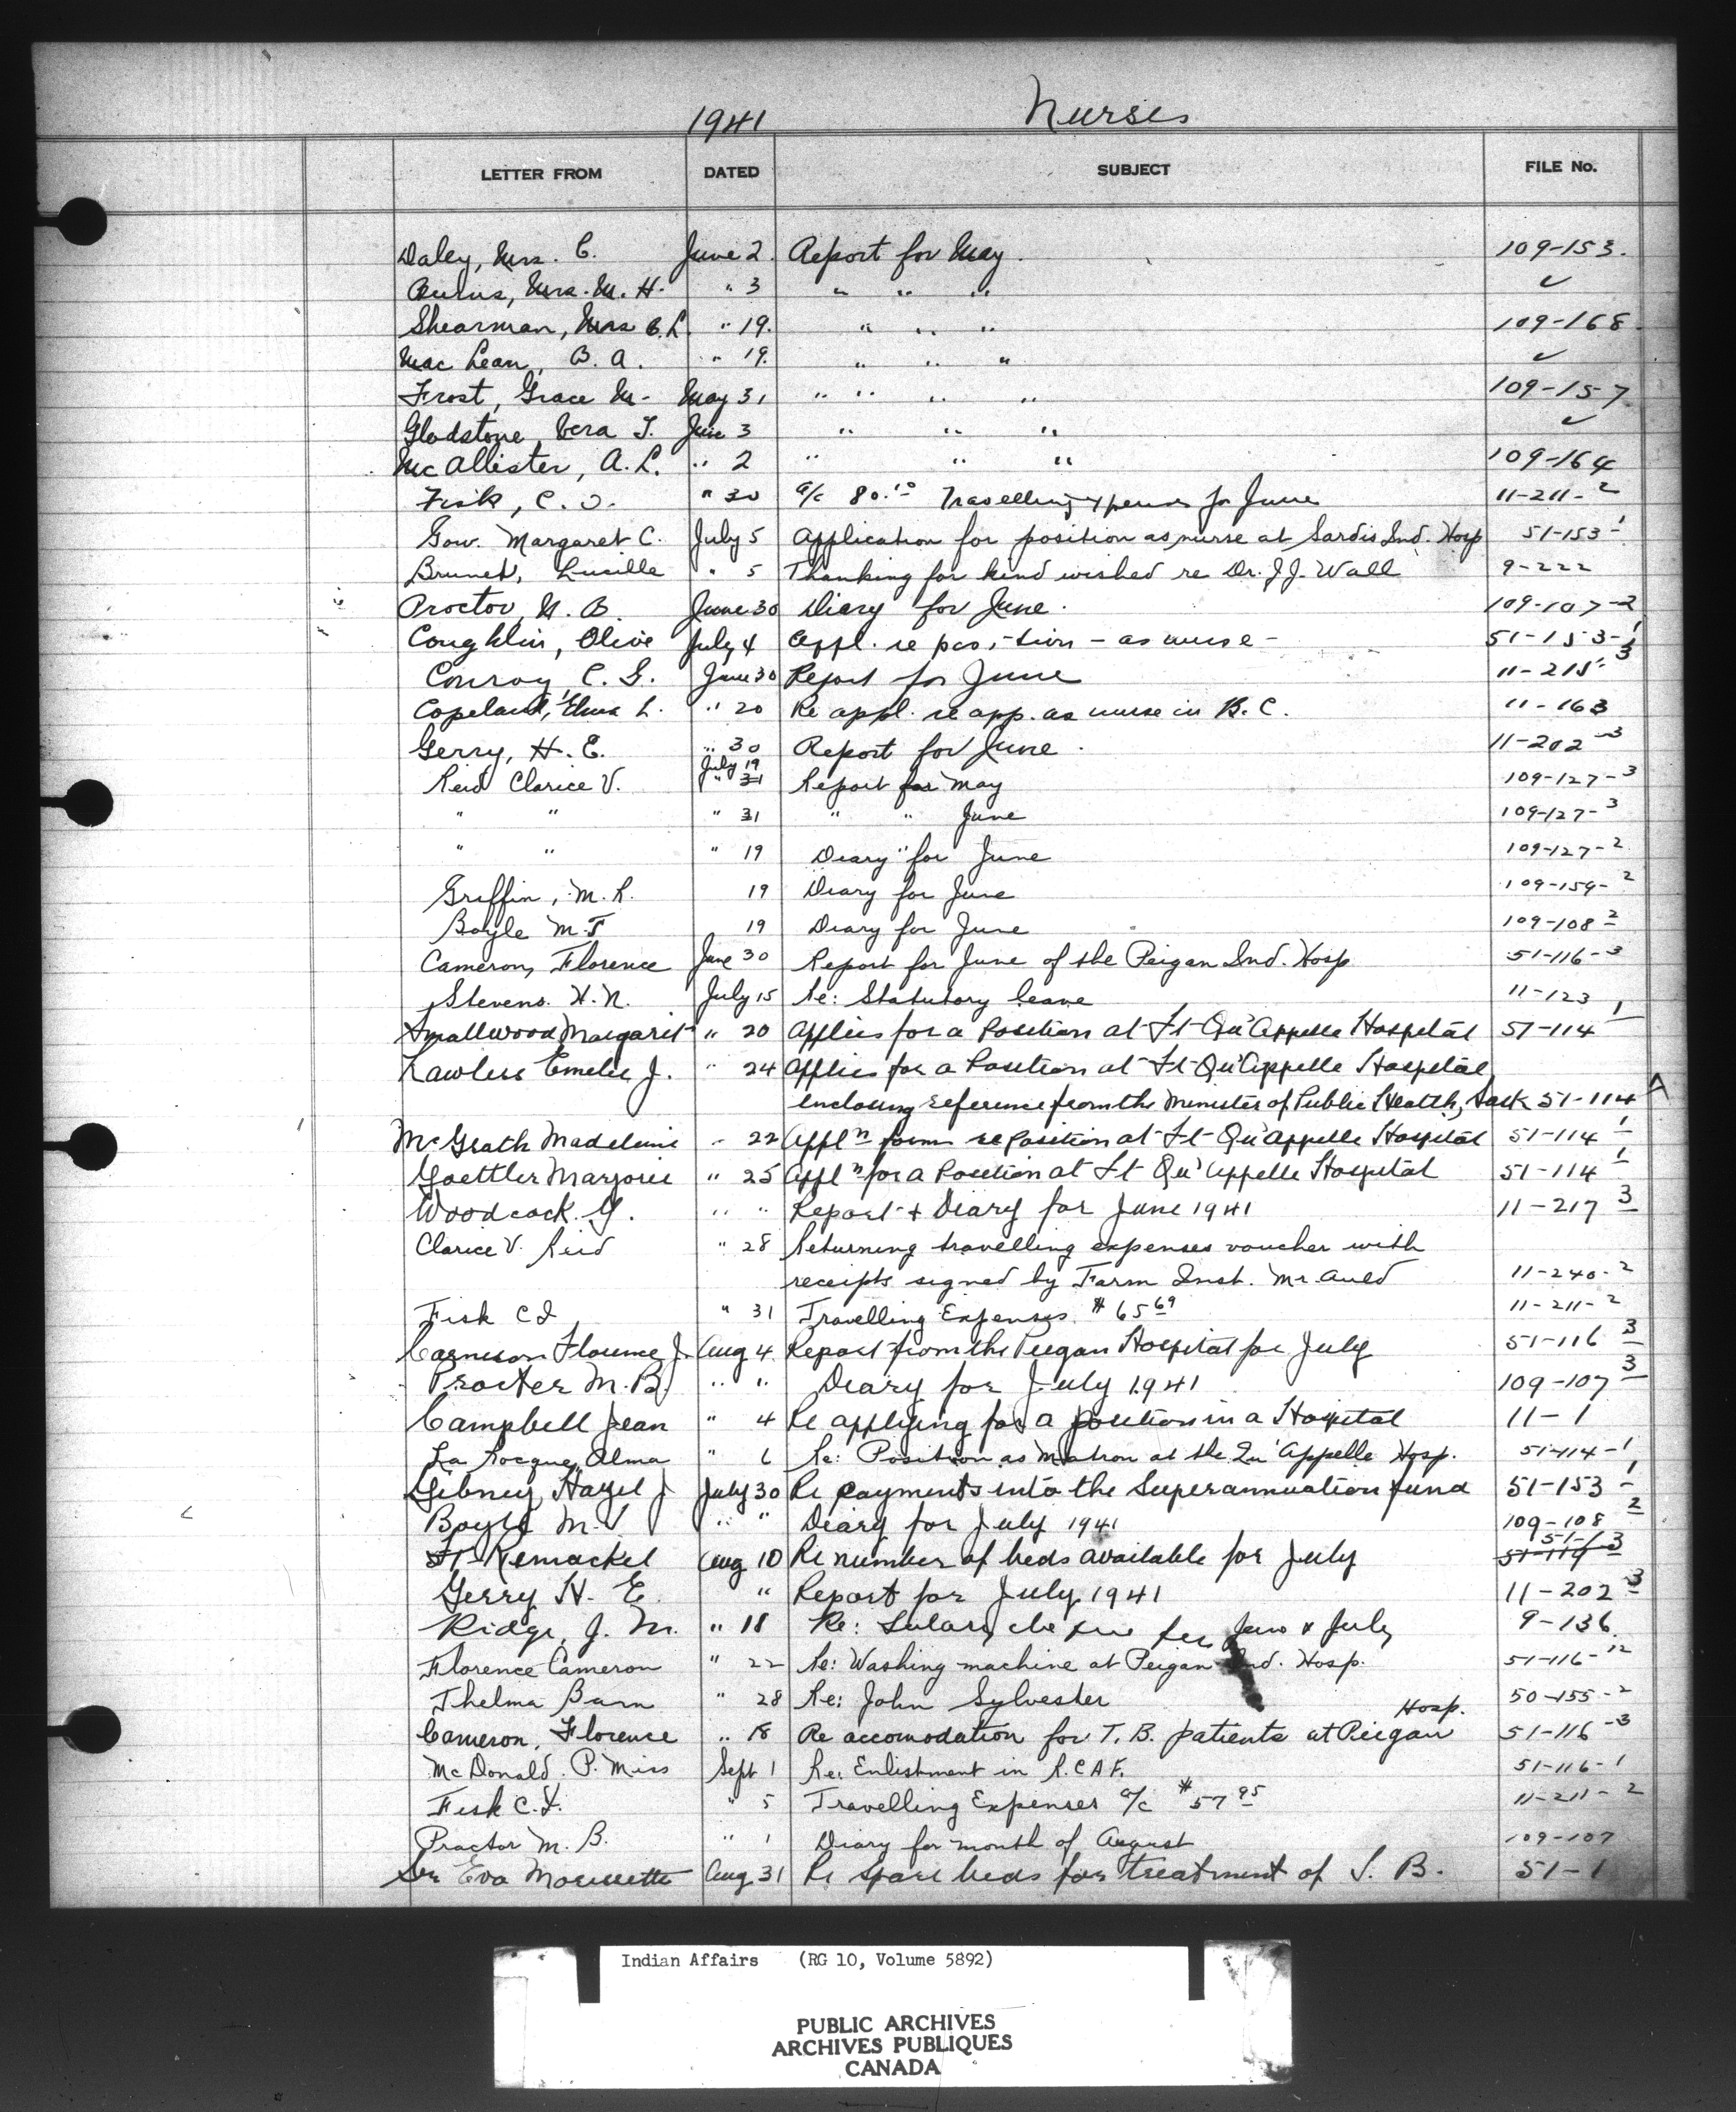 1941 Nurses
LETTER FROM DATED SUBJECT FILE No.
Daley, Mrs. C. June 2. Report for May. 109-153.
Burns, Mrs. M. H. " 3 " " " ✓
Shearman, Mrs C. L. " 19. " " " 109-168.
Mac Lean, B. A. " 19. " " " ✓
Frost, Grace M- May 31 " " " " 109-157
Gladstone, Vera T. June 3 " " " ✓
McAllister, A. L. " 2 " " " 109-164
Fisk, C. I. " 30 a/c 80.10 Travelling expenses for June 11-211-2
Gow. Margaret C. July 5 Application for position as nurse at Sardis Ind. Hosp 51-153-1
Brunet, Lucille " 5 Thanking for kind wished re Dr. J J. Wall 9-222
Proctor, M. B. June 30 Diary for June. 109-107-2
Coughlin, Olive July 4 Appl. re position - as nurse - 51-153-1
Conroy, C. G. June 30 Report for June 11-215-3
Copeland, Elma L. " 20 Re appl. re app. as nurse in B. C. 11-163
Gerry, H. E. " 30 Report for June. 11-202-3
Reid Clarice V. July 19 " 31 Report for May 109-127-3
" " " 31 " " June 109-127-3
" " " 19 Diary " for June 109-127-2
Griffin, M. R. 19 Diary for June 109-159-2
Boyle M. J 19 Diary for June 109-108 2
Cameron, Florence June 30 Report for June of the Peigan Ind. Hosp 51-116-3
Stevens. H. N. July 15 Re: Statutory leave 11-123
Smallwood Margaret " 20 Applies for a Position at Ft Qu'Appelle Hospital 51-114 1
Lawless Emelie J. " 24 Applies for a Position at Ft Qu'Appelle Hospital,
enclosing reference from the Minister of Public Health, Sask 51-114 A
McGrath Madeleine " 22 Appl'n form re Position at Ft Qu'Appelle Hospital 51-114 1
Goettler Marjorie " 25 Appl'n for a Position at Ft Qu'Appelle Hospital 51-114 1
Woodcock. G. " " Report + Diary for June 1941 11-217 3
Clarice V. Reid " 28 Returning travelling expenses voucher with
receipts signed by Farm Inst. Mr. Auld 11-240-2
Fisk C I " 31 Travelling Expenses $65 69 11-211-2
Cameron Florence J. Aug 4 Report from the Peigan Hospital for July 51-116 3
Procter M. B. " " Diary for July 1941 109-107 3
Campbell Jean " 4 Re applying for a position in a Hospital 11-1
La Rocque, Alma " 6 Re: Position as Matron at the Qu'Appelle Hosp. 51-114-1
Gibney, Hazel J July 30 Re payments into the Superannuation fund 51-153 1
Boyle M. J " " Diary for July 1941 109-108 2
Aug 10 Re number of beds available for July 51-1-3
Gerry H. E. " Report for July 1941 11-202 3
Ridge, J. M. " 18 Re: Salary che due for June & July 9-136
Florence Cameron " 22 Re: Washing machine at Peigan Ind. Hosp. 51-116-12
Thelma Barn " 28 Re: John Sylvester 50-155-2
Cameron, Florence " 18 Re accomodation for T. B. patients at Peigan Hosp. 51-116-3
McDonald. P. Miss Sept 1 Re: Enlistment in R.C.A.F. 51-116-1
Fisk C. I. " 5 Travelling Expenses a/c $57 95 11-211-2
Proctor M. B. " 1 Diary for month of August 109-107
Sr Eva Aug 31 Re spare beds for treatment of T. B. 51-1
Indian Affairs (RG 10, Volume 5892)
PUBLIC ARCHIVES
ARCHIVES PUBLIQUES
CANADA